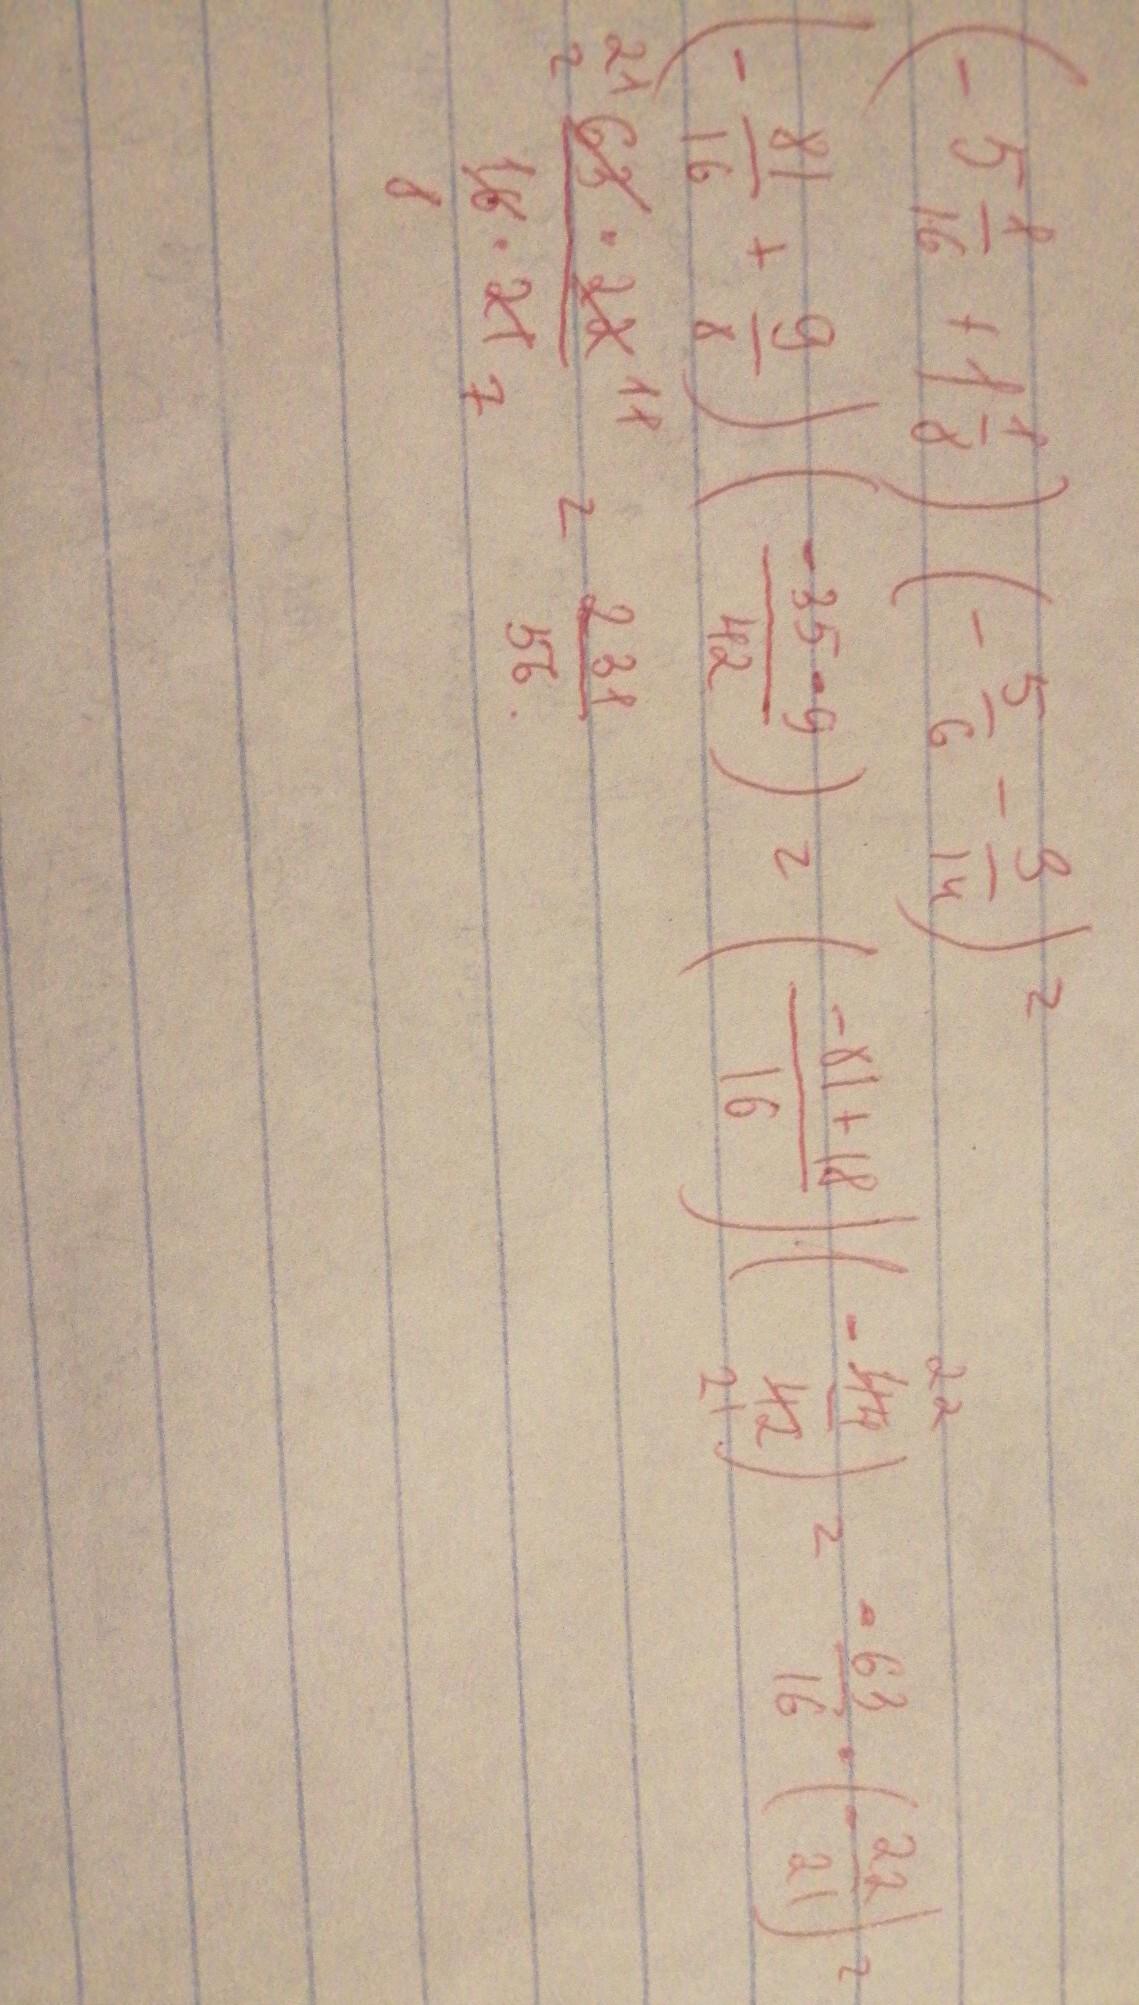 (- 5 1/16 + 1 1/8) (- 5/6 - 3/14) =
(- 81/16 + 9/8) ((-35 - 9)/42) = ((-81 + 18)/16) (- 44/42) 22 21 = - 63/16 · (- 22/21) =
= 21 63 · 22 11 / 16 · 21 8 7 = 231/56.